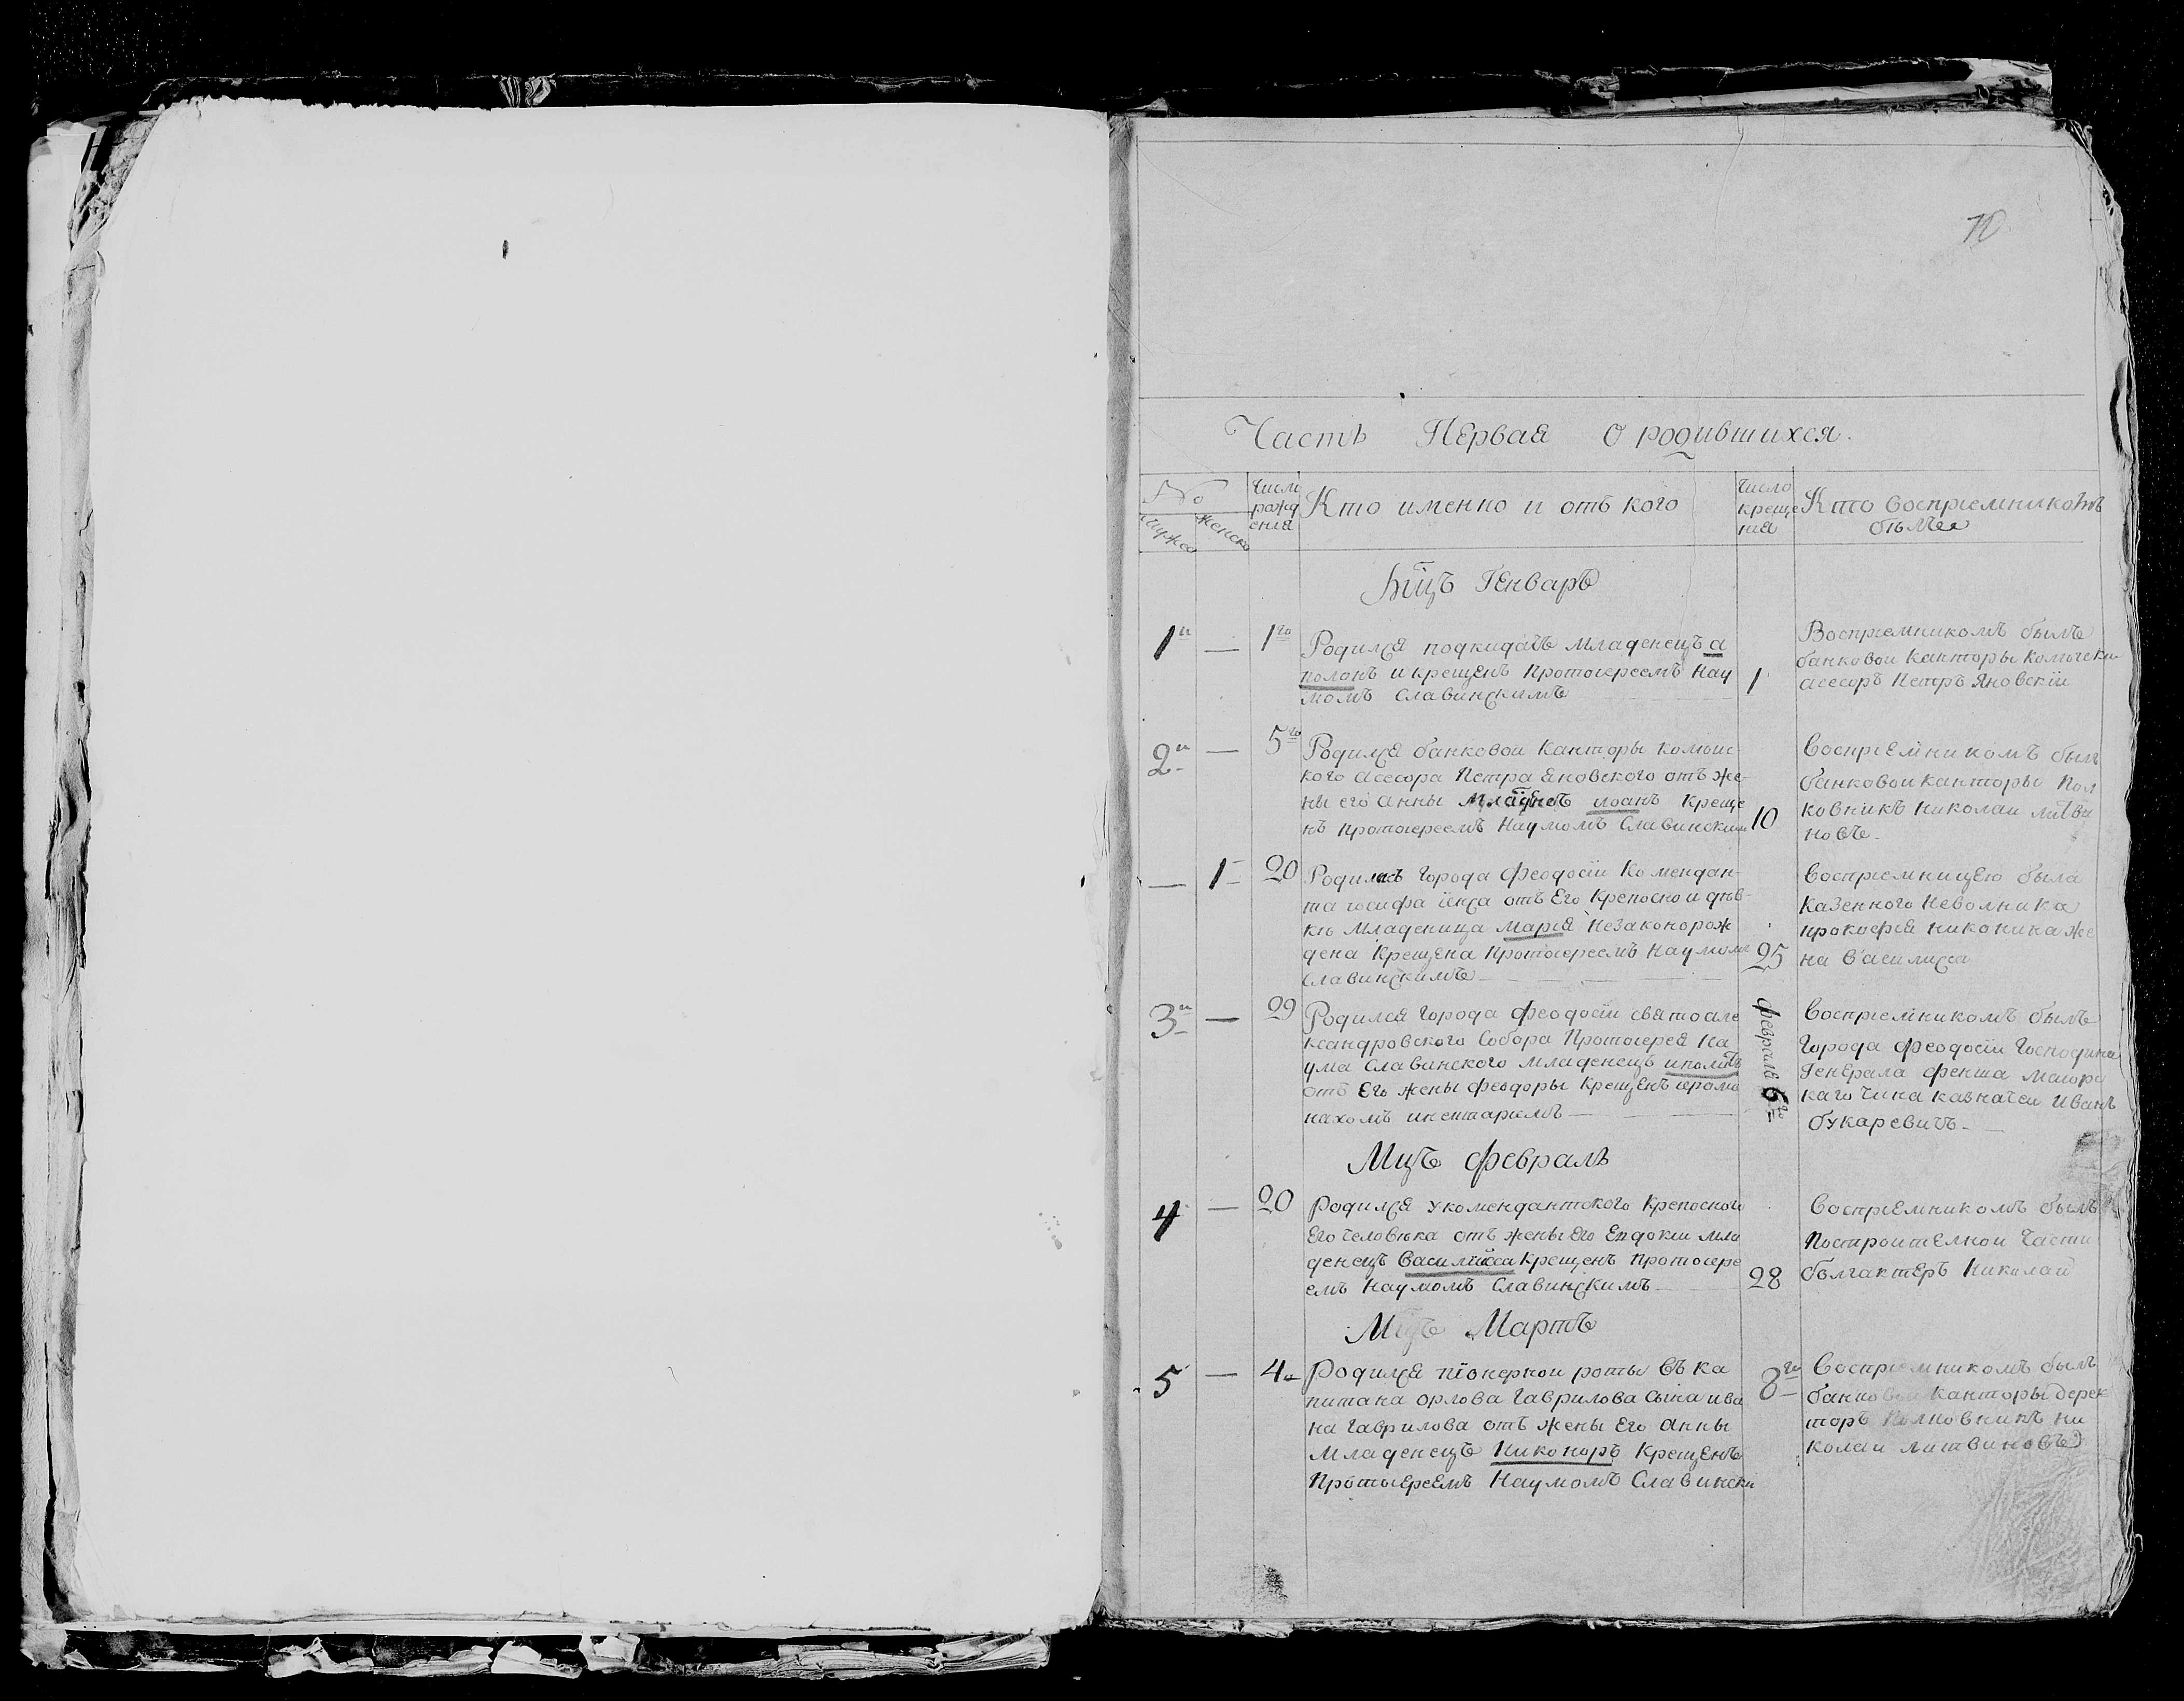 10
Часть Первая О родившихся.
№
мужес женска
Число рожд ениа
Кто именно и отъ кого
Число креще ниа
Кто воспріемникомъ былъ
Мцъ Генварь
1й — 1го
Родилса подкидачь младенецъ а
полонъ и крещенъ протоиереемъ Нау
момъ Славинскимъ
1
Воспріемникомъ былъ
банковои канторы
асесоръ Петръ Яновскіи
2й — 5го
Родилса банковои канторы
кого асесора Петра Яновского отъ же-
ны его анны иоанъ креще
нъ протоиереемъ Наумомъ Славинским
10
Воспріемникомъ былъ
банковои канторы пол
ковникъ николаи литви
новъ
— 1 20
Родилась города феодосіи комендан-
та иосифа отъ его крепоснои дѣв-
кѣ младеница мариа незаконорож
дена крещена протоиереемъ наумомъ
славинскимъ
25
Воспріемницею была
казенного неволника
прокофиа никонина же
на василиса
3й — 29
Родилса города феодосіи свято але
ксандровского собора протоиереа на
ума славинского младенецъ иполитъ
отъ его жены феодоры крещенъ иеромо
нахомъ
февраля 6го
Воспріемникомъ былъ
города феодосіи господина
генерала фенша маиорс
каго чина казначеи иванъ
букаревичъ
Мцъ февраль
4 — 20
Родилса у комендантского крепосного
его человѣка отъ жены его евдокии мла
денецъ василисса крещенъ протоиере
емъ наумомъ славинскимъ
28
Воспріемникомъ былъ
построителнои части
булгактеръ николаи
Мцъ Мартъ
5 — 4
Родилса піонернои роты въ ка
питана орлова гаврилова сына ива
на гаврилова отъ жены его анны
младенецъ никоноръ крещенъ
протыереемъ наумомъ славински
8го
Воспріемникомъ былъ
банковои канторы дерек
торъ полковникъ ни
колаи литвиновъ